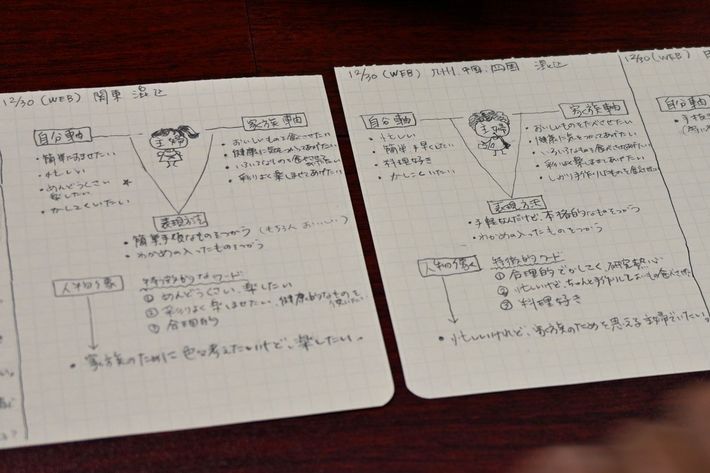 12/30 (WEB) 関東 混ぜ
自分軸
・簡単にすませたい
・忙しい
・めんどうくさい
楽したい
・かしこくいたい
主婦
家族軸
・おいしいものを食べさせたい
・健康に気をつけてあげたい
・いろいろなものを食べさせたい
・彩りよく楽しませてあげたい
表現方法
・簡単手軽なものをつかう(もちろんおいしい)
・わかめの入ったものをつかう
人物像
特徴的なワード
① めんどうくさい、楽したい
② 彩りよく楽しませたい、健康的なものを
使いたい
③ 合理的
・家族のために色々考えたいけど、楽したい。
12/30 (WEB) 九州、中国、四国 混ぜ
自分軸
・忙しい
・簡単手早くしたい
・料理好き
・かしこくいたい
主婦
家族軸
・おいしいものを食べさせたい
・健康に気をつけてあげたい
・いろいろなものを食べさせてあげたい
・彩りよく楽しませてあげたい
・しっかり手作りのものを食べさせたい
表現方法
・手軽なんだけど、本格的なものをつかう
・わかめの入ったものをつかう
人物像
特徴的ワード
① 合理的でかしこく、研究熱心
② 忙しいけど、ちゃんと手作りしたいもの
③ 料理好き
・忙しいけれど、家族のためを思える主婦でいたい。
12/30 (WEB)
自分軸